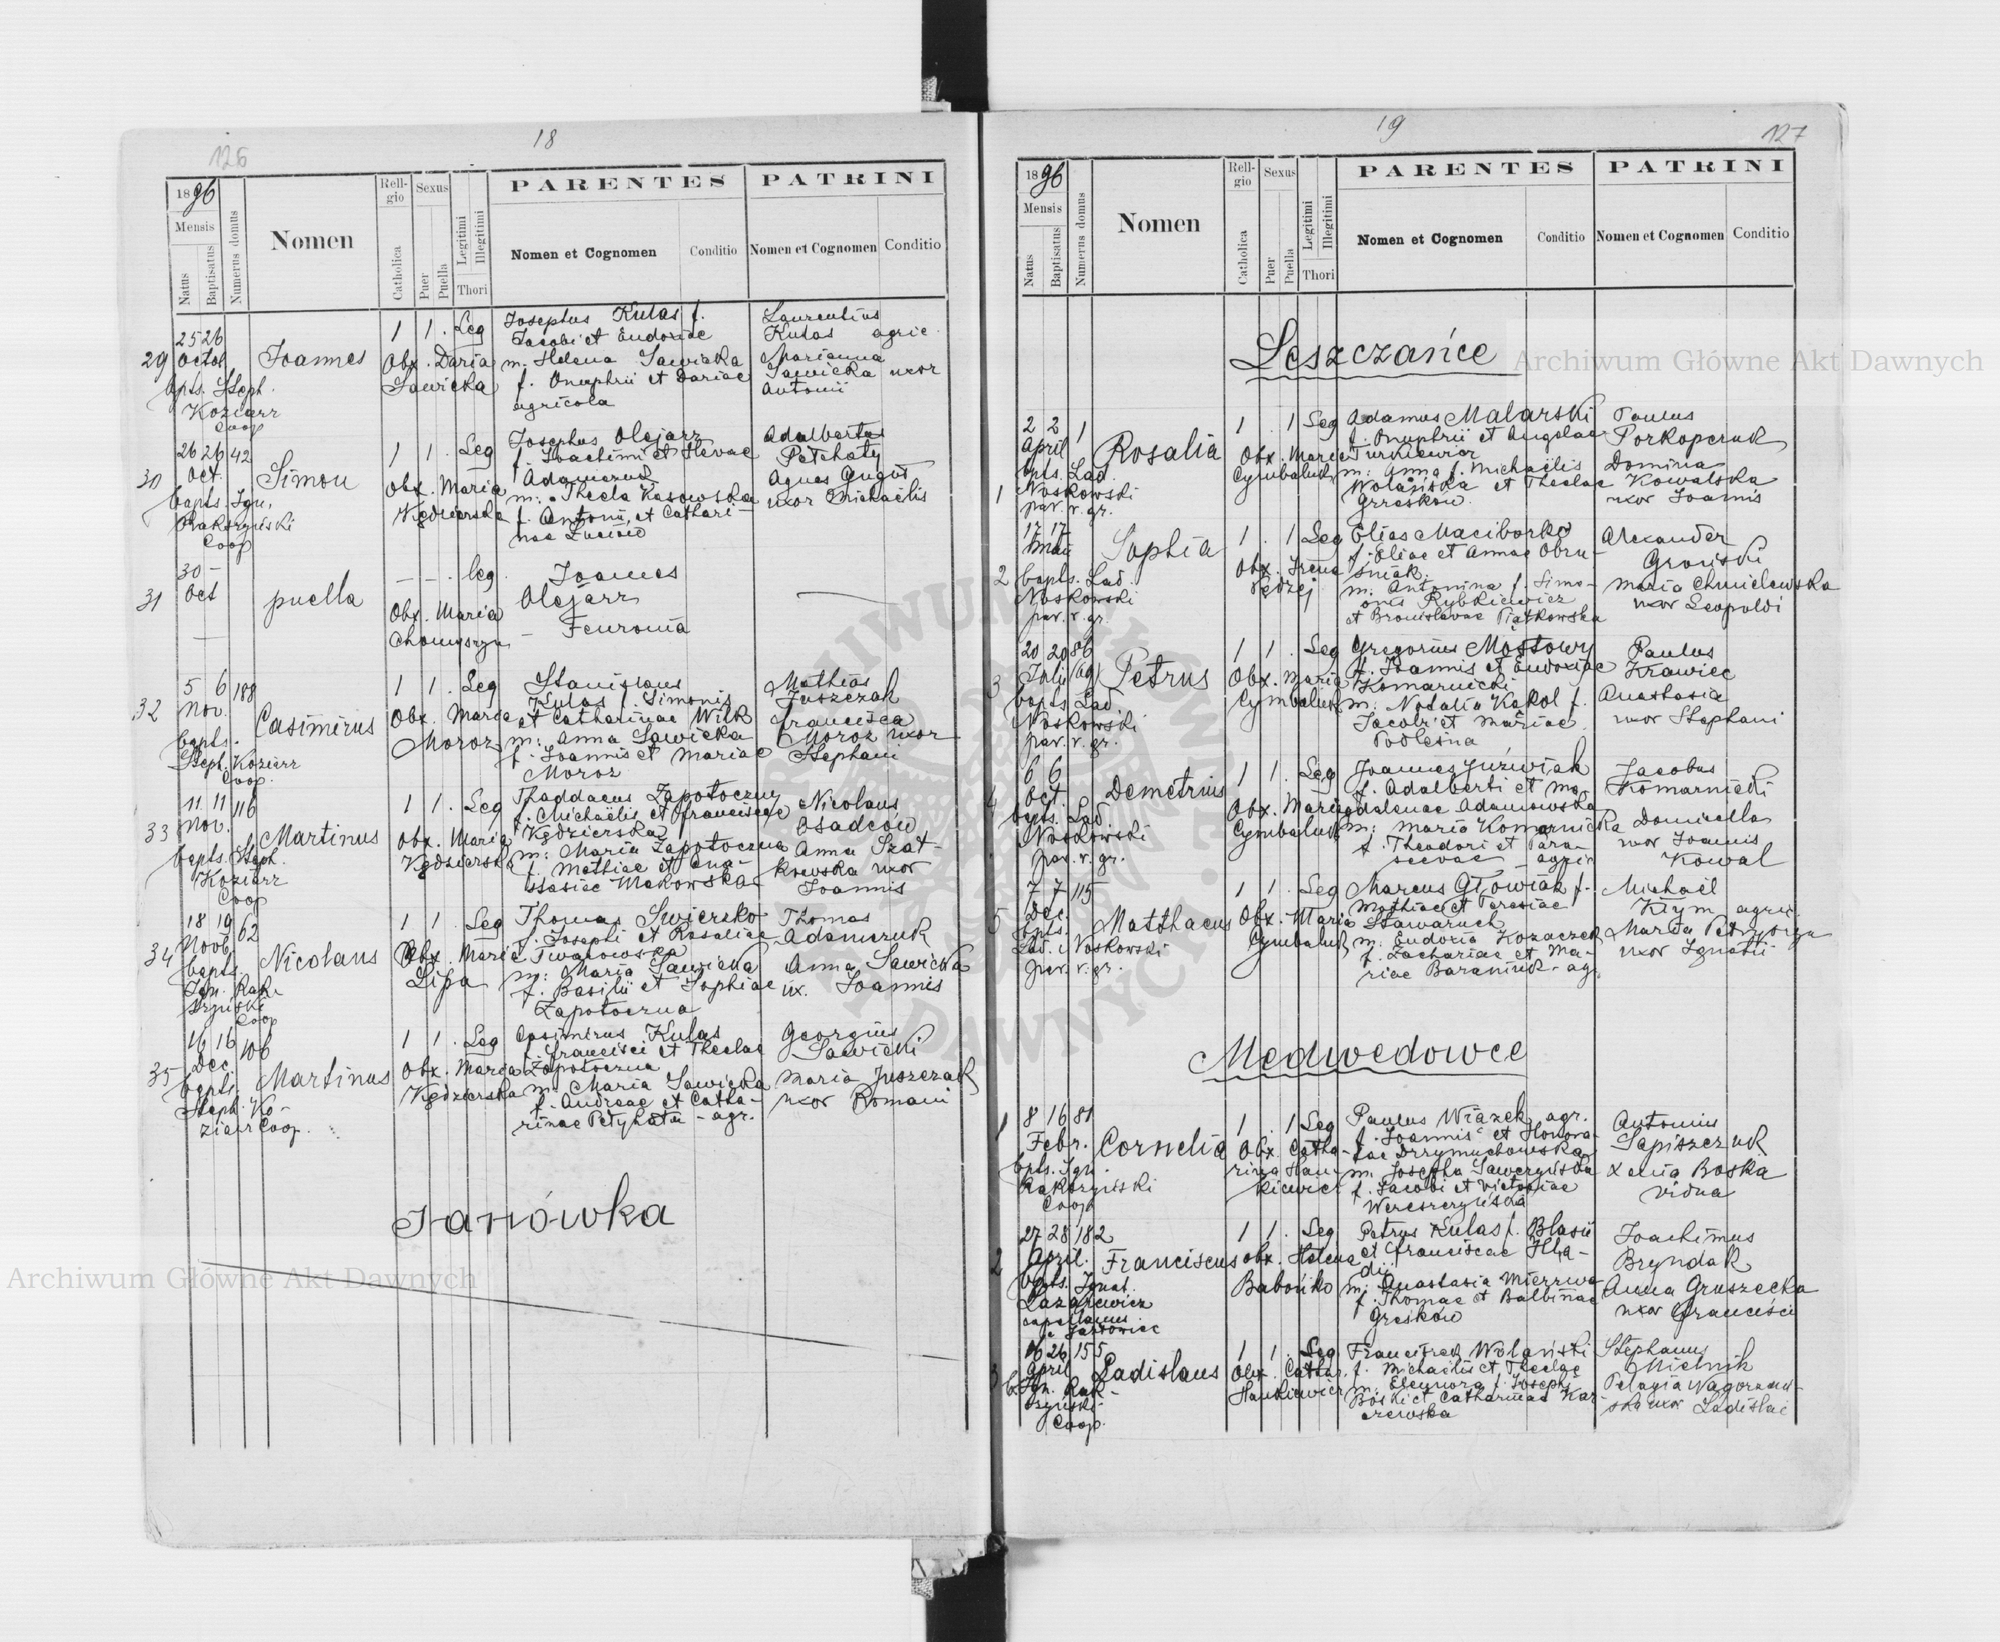 126
18
1896
Mensis
Natus
Baptisatus
Numerus domus
Nomen
Religio
Catholica
Sexus
Puer
Puella
Legitimi
Illegitimi
Thori
PARENTES
Nomen et Cognomen
Conditio
PATRINI
Nomen et Cognomen
Conditio
29
25 26
Octob
bpts. Steph.
Koziarz
Coop
Joannes
1 1 . Leg
Obx. Daria
Sawicka
Josephus Kulas f.
Jacobi et Eudoxiae
m. Helena Sawicka
f. Onuphrii et Dariae
agricola
Laurentius
Kulas agric.
Marianna
Sawicka uxor
Antonii
30
26 26 42
Oct.
bapts. Ign.
Rakszyński
Coop
Simon
1 1 . Leg
Obx. Maria
Kędzierska
Josephus Olejarz
f. Joachimi et Hevae
Adamczuk
m. Thecla Kasowska
f. Antonii et Cathari-
nae
Adalbertus
Petchaty
Agnes
uxor Michaëlis
31
30 -
Oct
puella
— — . leg.
Obx. Maria
Joannes
Olejarz
- Feuronia
32
5 6 188
Nov.
bapts.
Steph. Koziarz
Coop.
Casimirus
1 1 . Leg
Obx. Maria
Moroz
Stanislaus
Kulas f. Simonis
et Catharinae Wilk
m: Anna Sawicka
f. Joannis et Mariae
Moroz
Mathias
Juszczak
Francisca
Moroz uxor
Stephani
33
11 11 116
Nov.
bapts. Steph.
Koziarz
Coop
Martinus
1 1 . Leg
Obx. Maria
Kędzierska
Thaddaeus Zapotoczny
f. Michaëlis et Franciscae
Kędzierska
m: Maria Zapotoczna
f. Mathiae et Ana-
stasiae Makowska
Nicolaus
Osadców
Anna Szat-
kowska uxor
Joannis
34
18 19 62
Novb.
bapts.
Ign. Rak-
szyński
Coop
Nicolaus
1 1 . Leg
Obx. Maria
Lipa
Thomas Swiersko
f. Josephi et Rosaliae
Iwanowska
m: Maria Sawicka
f. Basilii et Sophiae
Zapotoczna
Thomas
Adamczuk
Anna Sawicka
ux. Joannis
35
16 16 106
Dec.
bapts.
Steph. Ko-
ziarz Coop.
Martinus
1 1 . Leg
Obx. Maria
Kędzierska
Casimirus Kulas
f. Francisci et Theclae
Zapotoczna
m. Maria Sawicka
f. Andreae et Catha-
rinae Petyhata - agr.
Georgius
Sawicki
Maria Juszczak
uxor Romani
Janówka
19
127
1896
Mensis
Natus
Baptisatus
Numerus domus
Nomen
Religio
Catholica
Sexus
Puer
Puella
Legitimi
Illegitimi
Thori
PARENTES
Nomen et Cognomen
Conditio
PATRINI
Nomen et Cognomen
Conditio
Leszczańce
1
2 2 1
April
bpts. Lad.
Noskowski
par. r. gr.
Rosalia
1 . 1 Leg
Obx. Maria
Cymbaluk
Adamus Malarski
f. Onuphrii et Angelae
Turkiewicz
m: Anna f. Michaëlis
Wolańska et Theclae
Grzesków
Paulus
Porkopczuk
Domina
Kowalska
uxor Joannis
2
17 17
Maii
bapts. Lad.
Noskowski
par. r. gr.
Sophia
1 . 1 Leg
Obx. Irena
Elias Maciborko
f. Eliae et Annae Obru-
śniak.
m: Antonina f. Simo-
onis Rybkiewicz
et Bronislavae Piątkowska
Alexander
Groński
Maria Chmielowska
uxor Leopoldi
3
20 20 86
Julii
bapts Lad.
Noskowski
par. r. gr.
Petrus
1 1 . Leg
Obx. Maria
Cymbaluk
Gregorius Mostowy
f. Joannis et Eudoxiae
Komarnicki
m: Natalia Kąkol f.
Jacobi et Mariae
Podleśna
Paulus
Krawiec
Anastasia
uxor Stephani
4
6 6
Oct.
bpts. Lad
Noskowski
par. r. gr.
Demetrius
1 1 . Leg
Obx. Maria
Cymbaluk
Joannes Juzwiak
f. Adalberti et Ma-
gdalenae Adamowska
m: Maria Komarnicka
f. Theodori et Para-
scevae - agric
Jacobus
Komarnicki
Domicella
uxor Joannis
Kowal
5
7 7 115
Dec.
bpts.
Lad. Noskowski
par. r. gr.
Matthaeus
1 1 . Leg
Obx. Maria
Cymbaluk
Marcus Głowiak f.
Mathiae et Teresiae
Stawaruch
m. Eudoxia Kozaczek
f. Zachariae et Ma-
riae Baraniuk - ag.
Michaël
Klym agric.
Maria
uxor Ignatii
Medwedowce
1
8 16 81
Febr.
bpts. Ign.
Rakszyński
Coop
Cornelia
1 . 1 Leg
Obx. Catha-
rina Han-
kiewicz
Paulus Wiązek, agr.
f. Joannis et Honora-
tae
m. Josepha
f. Jacobi et Victoriae
Antonius
Sapiszczuk
Xenia Boska
vidua
2
27 28 182
April.
bpts. Ignat.
Łazarewicz
capellanus
Franciscus
1 1 . Leg
obx. Helena
Babońko
Petrus Kulas f. Blasii
et Franciscae Hła-
dij
m. Anastasia Mierzwa
f. Thomae et Balbinae
Greskow
Joachimus
Bryndak
Anna Gruszecka
uxor Francisci
3
16 26 155
April
b. Ign. Rak-
szyński-
Coop.
Ladislaus
1 1 . Leg
Obx. Cathar.
Hankiewicz
Franciscus Wolański
f. Michaëlis et Theclae
m. Eleonora f. Josephi
Boski et Catharinae Kar-
czewska
Stephanus
Mielnik
Pelagia Nagórzań-
ska uxor Ladislai
Archiwum Główne Akt Dawnych
Archiwum Główne Akt Dawnych